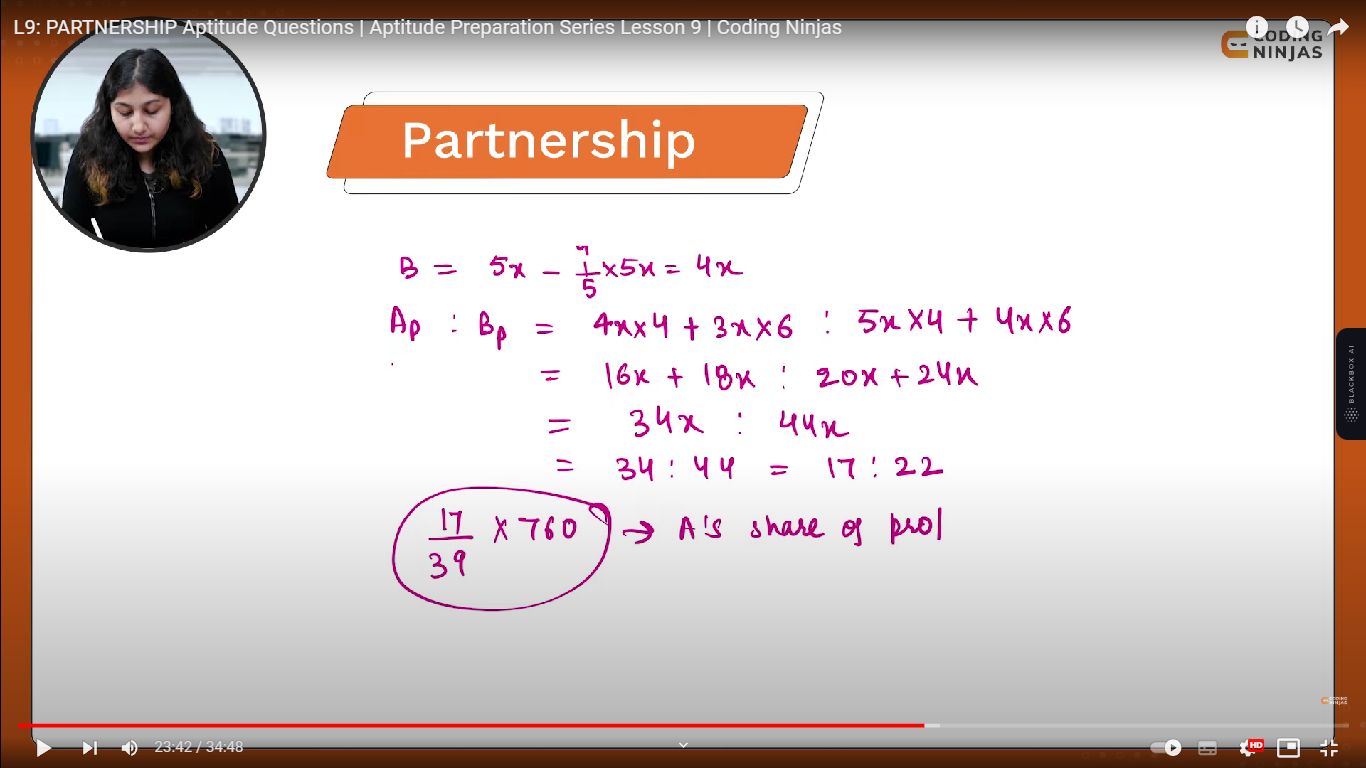 L9: PARTNERSHIP Aptitude Questions | Aptitude Preparation Series Lesson 9 | Coding Ninjas
CODING
NINJAS
Partnership
B = 5x - 1/5 × 5x = 4x
Ap : Bp = 4x×4 + 3x×6 : 5x×4 + 4x×6
= 16x + 18x : 20x + 24x
= 34x : 44x
= 34 : 44 = 17 : 22
17/39 × 760 → A's share of prof
BLACKBOX AI
CODING
NINJAS
23:42 / 34:48
HD